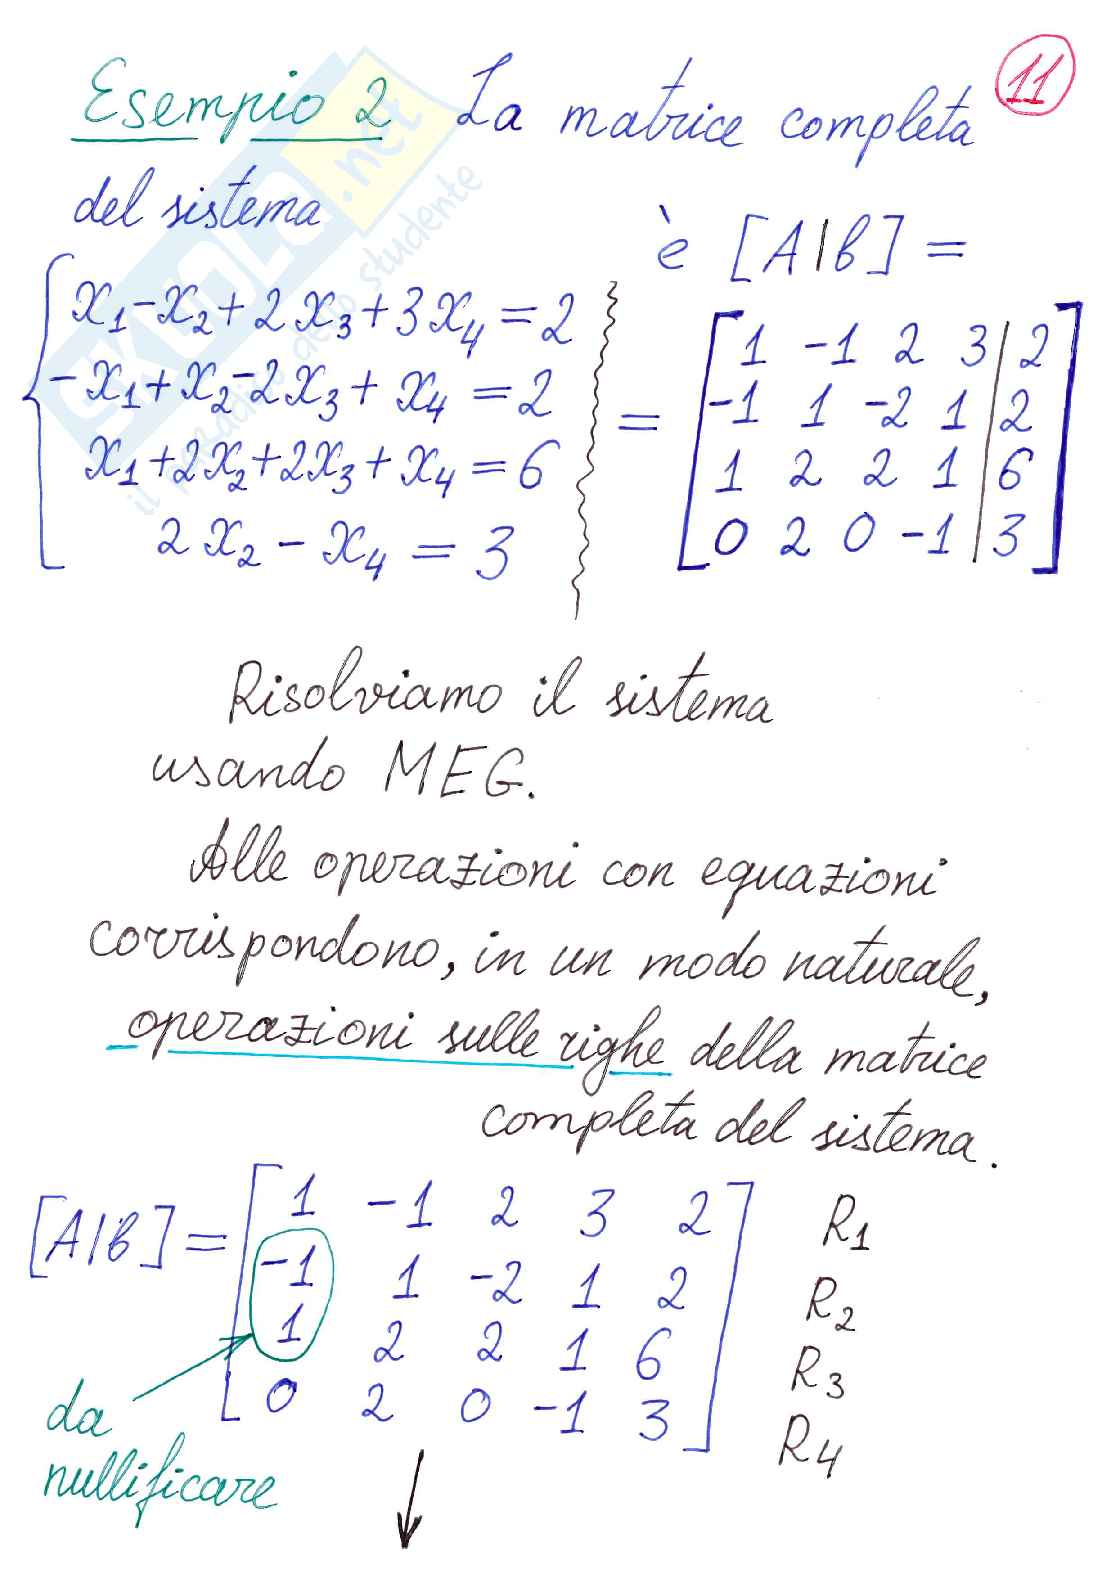 Esempio 2 La matrice completa
11
del sistema
è [A|b] =
x₁-x₂+2x₃+3x₄=2
-x₁+x₂-2x₃+x₄=2
x₁+2x₂+2x₃+x₄=6
2x₂-x₄=3
=
1 -1 2 3 | 2
-1 1 -2 1 | 2
1 2 2 1 | 6
0 2 0 -1 | 3
Risolviamo il sistema
usando MEG.
Alle operazioni con equazioni
corrispondono, in un modo naturale,
operazioni sulle righe della matrice
completa del sistema.
[A|b]=
1 -1 2 3 2 R₁
-1 1 -2 1 2 R₂
1 2 2 1 6 R₃
0 2 0 -1 3 R₄
da
nullificare
SKUOLA.net
il paradiso dello studente